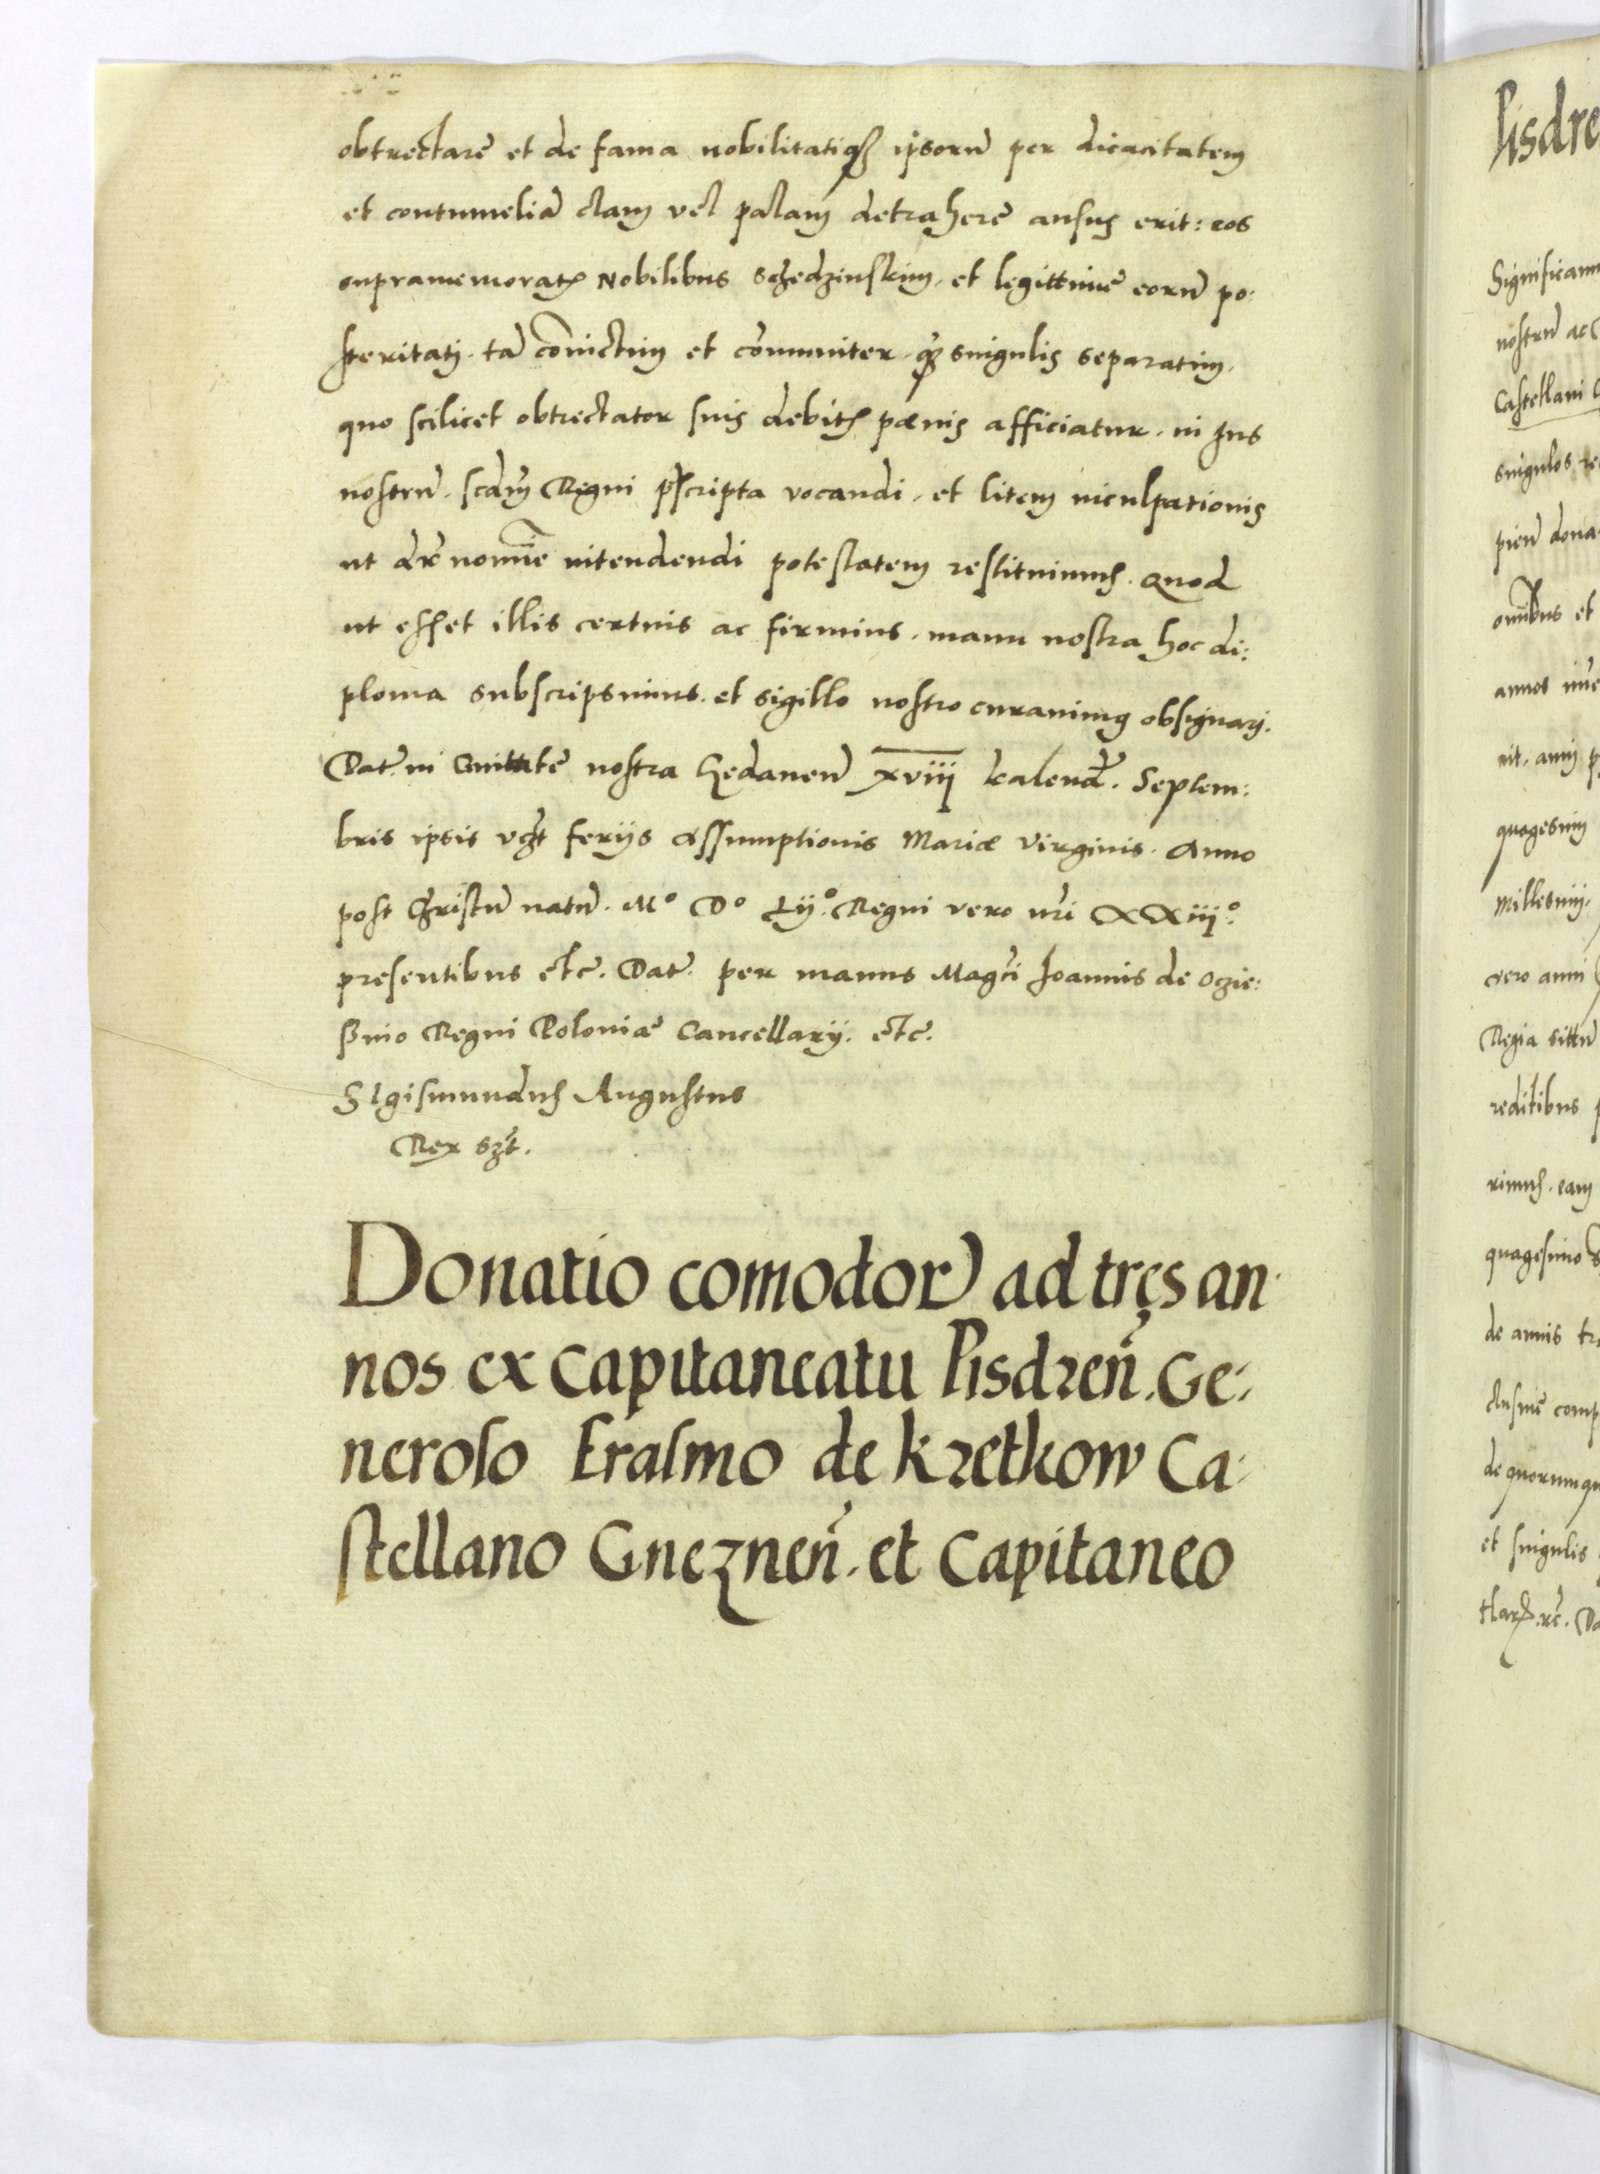 obtrectare et de fama nobilitatiqȝ ipsorū per dicacitatem
et contumeliā clam vel palam detrahere ausus erit: eos
supramemoratꝭ Nobilibus Schedzinskim. et legittime eorū po:
steritati. tā coniūctim et cōmuniter. qȝ singulis separatim.
quo scilicet obtrectator suis debitꝭ pœnis afficiatur. in Jus
nostrū. scdm̄ Regni pͣscripta vocandi. et litem inculpationis
ut nomīe intendendi potestatem restituimus. Quod
ut esset illis certius ac firmius. manu nostra hoc di:
ploma subscripsimus. et sigillo nostro curauimus obsignari.
Datͫ in Ciuitate nostra Gedanen̄ xviij kalend. Septem:
bris ipsis vꝫt ferijs Assumptionis Mariæ Virginis. Anno
post Christū natū. Mº Dº Lijº. Regni vero nr̄i XXiijº.
presentibus etc̄. Dat. per manus Magci Joannis de Oczie:
ssino Regni Poloniæ Cancellarij. etc̄.
SIgismundus Augustus
Rex sꝫt.
Donatio comodorū ad tres an
nos ex Capitaneatu Pisdren̄. Ge:
neroso Erasmo de Kretkow Ca:
stellano Gneznen̄. et Capitaneo
Pisdre
Significam
nostrū ac
Castellani
singulos re
pien̄ dona
om̄ibus et
annos
nit. anni p
quagesimi
Millesimi.
vero anni
Regia sittū
reditibus
rimus. eam
quagesimo
de annis tr
clusiue comp
de quorumqu
et singulis